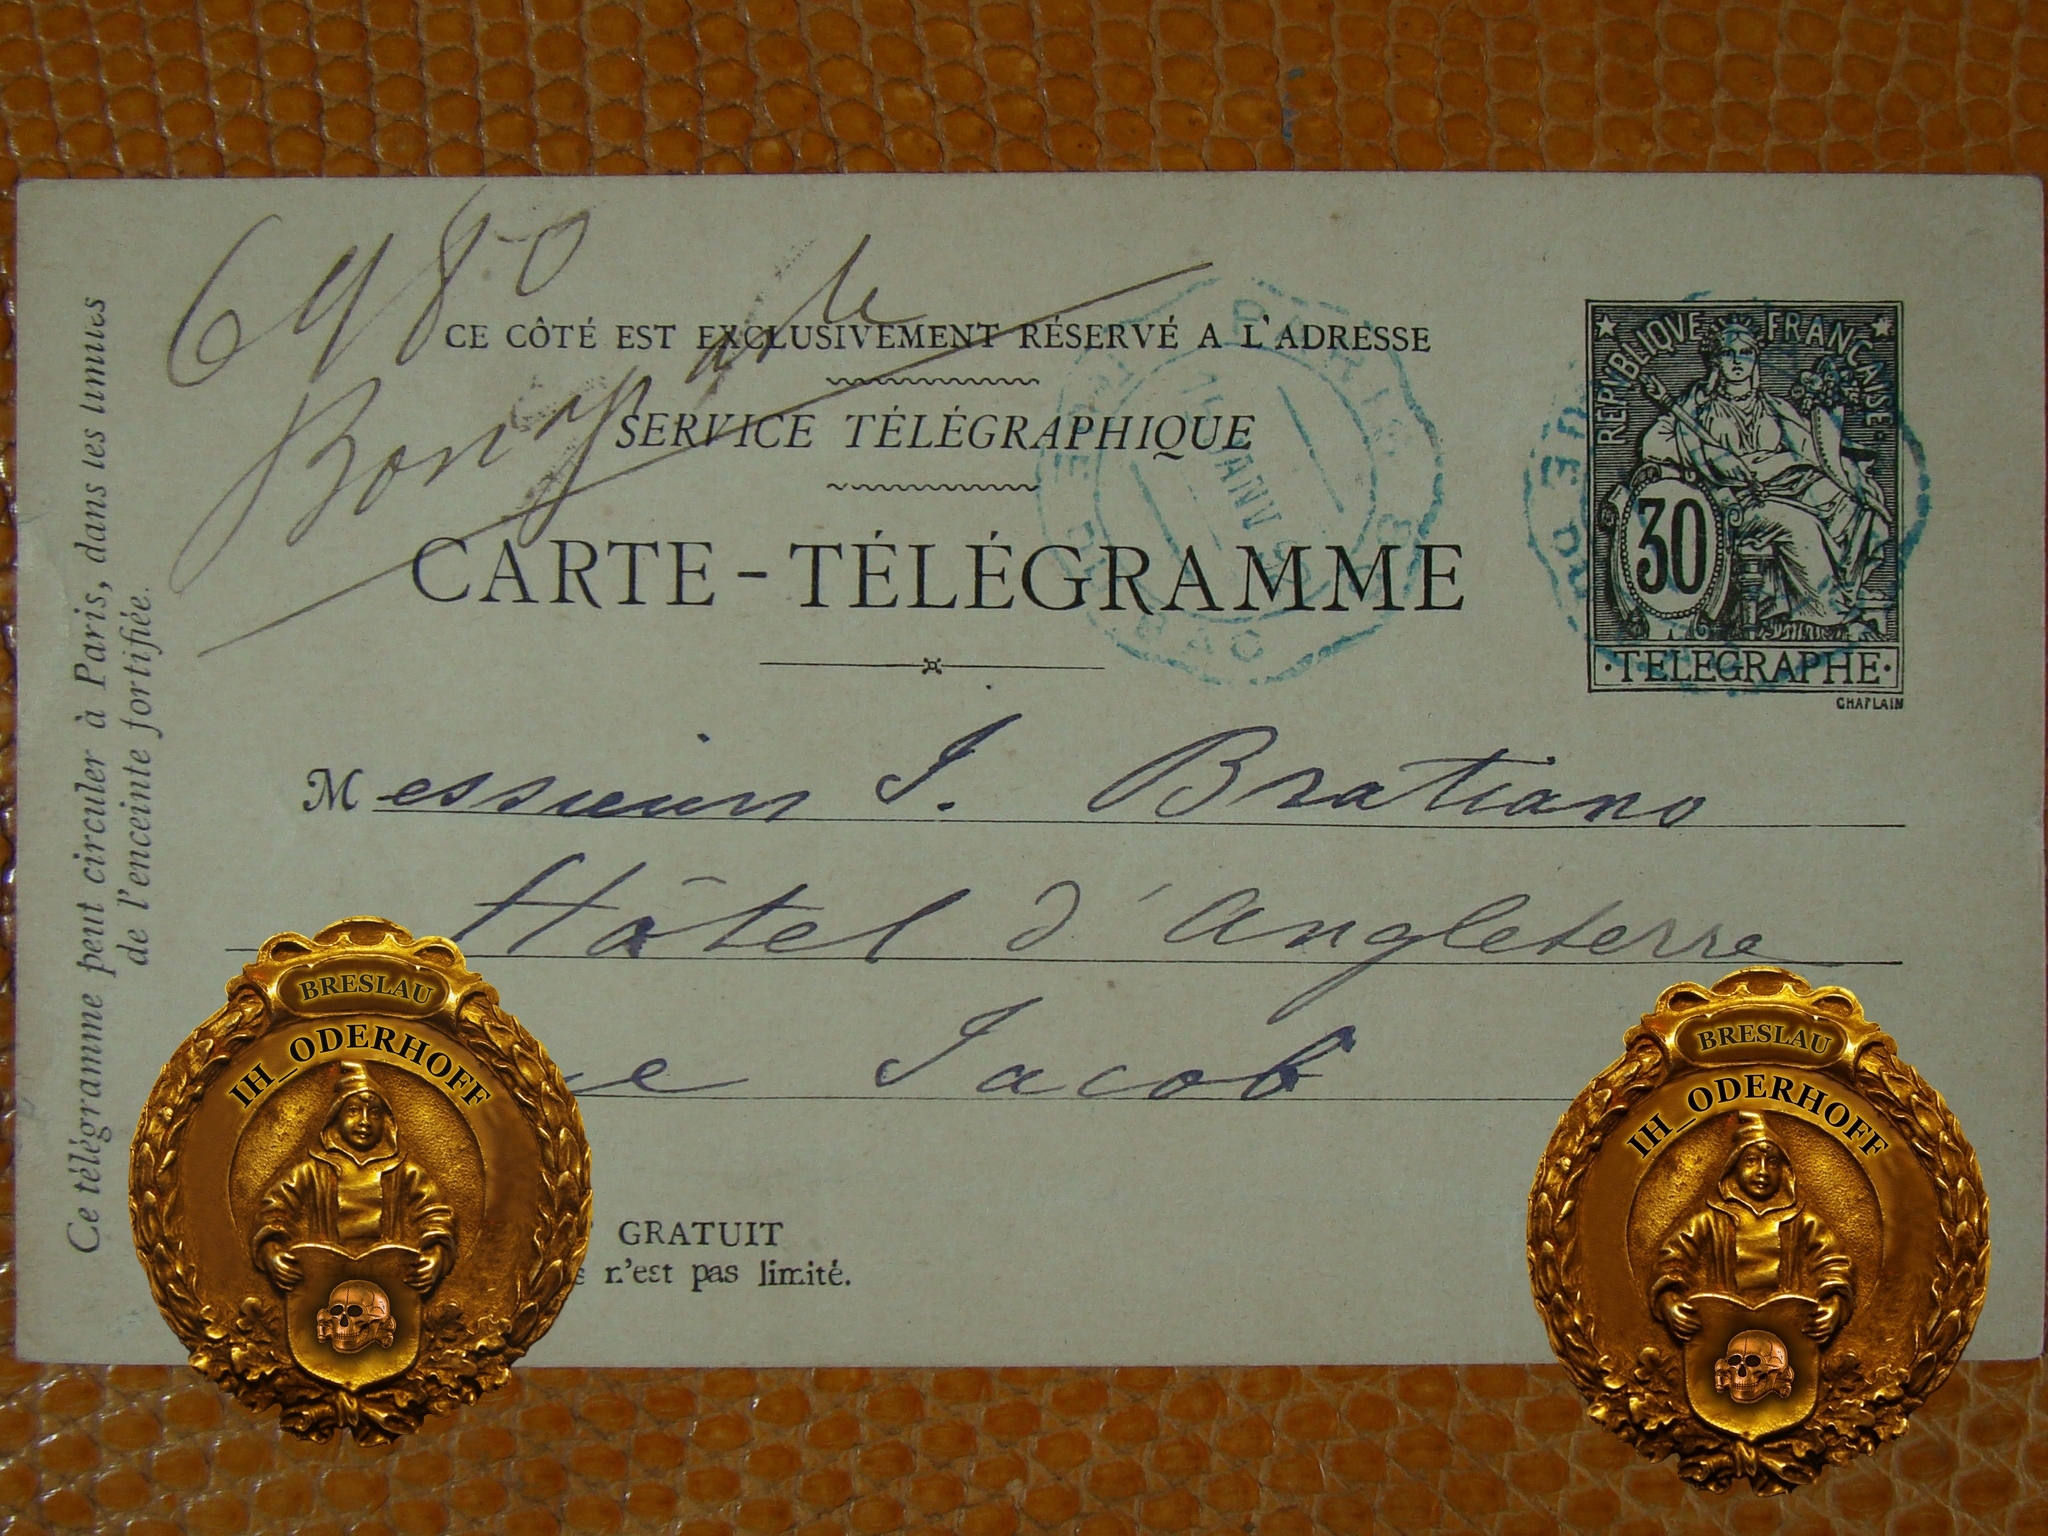 6980
Bonyale
CE CÔTÉ EST EXCLUSIVEMENT RÉSERVÉ A L'ADRESSE
SERVICE TÉLÉGRAPHIQUE
CARTE-TÉLÉGRAMME
PARIS
JANV
DU BAC
REPVBLIQVE FRANCAISE
30
·TELEGRAPHE·
CHAPLAIN
Messieurs I. Bratiano
Hôtel d'Angleterre
Jacob
GRATUIT
n'est pas limité.
Ce télégramme peut circuler à Paris, dans les limites
de l'enceinte fortifiée.
BRESLAU
IH_ODERHOFF
BRESLAU
IH_ODERHOFF